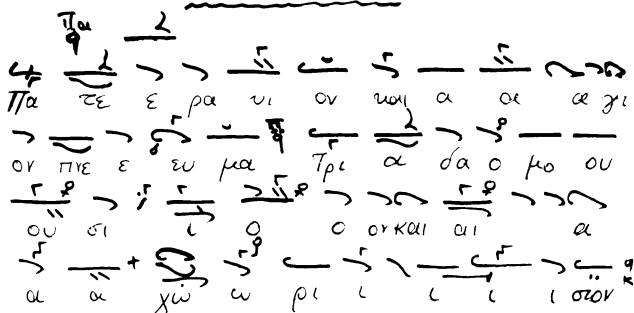 Πα
Πα τε ε ρα υι ον και α αε αε γι
ον πνε ε ευ μα Τρι α δα ο μο ου
ου σι ι ο ο ον και αι α
α α χω ω ρι ι ι ι ι στον